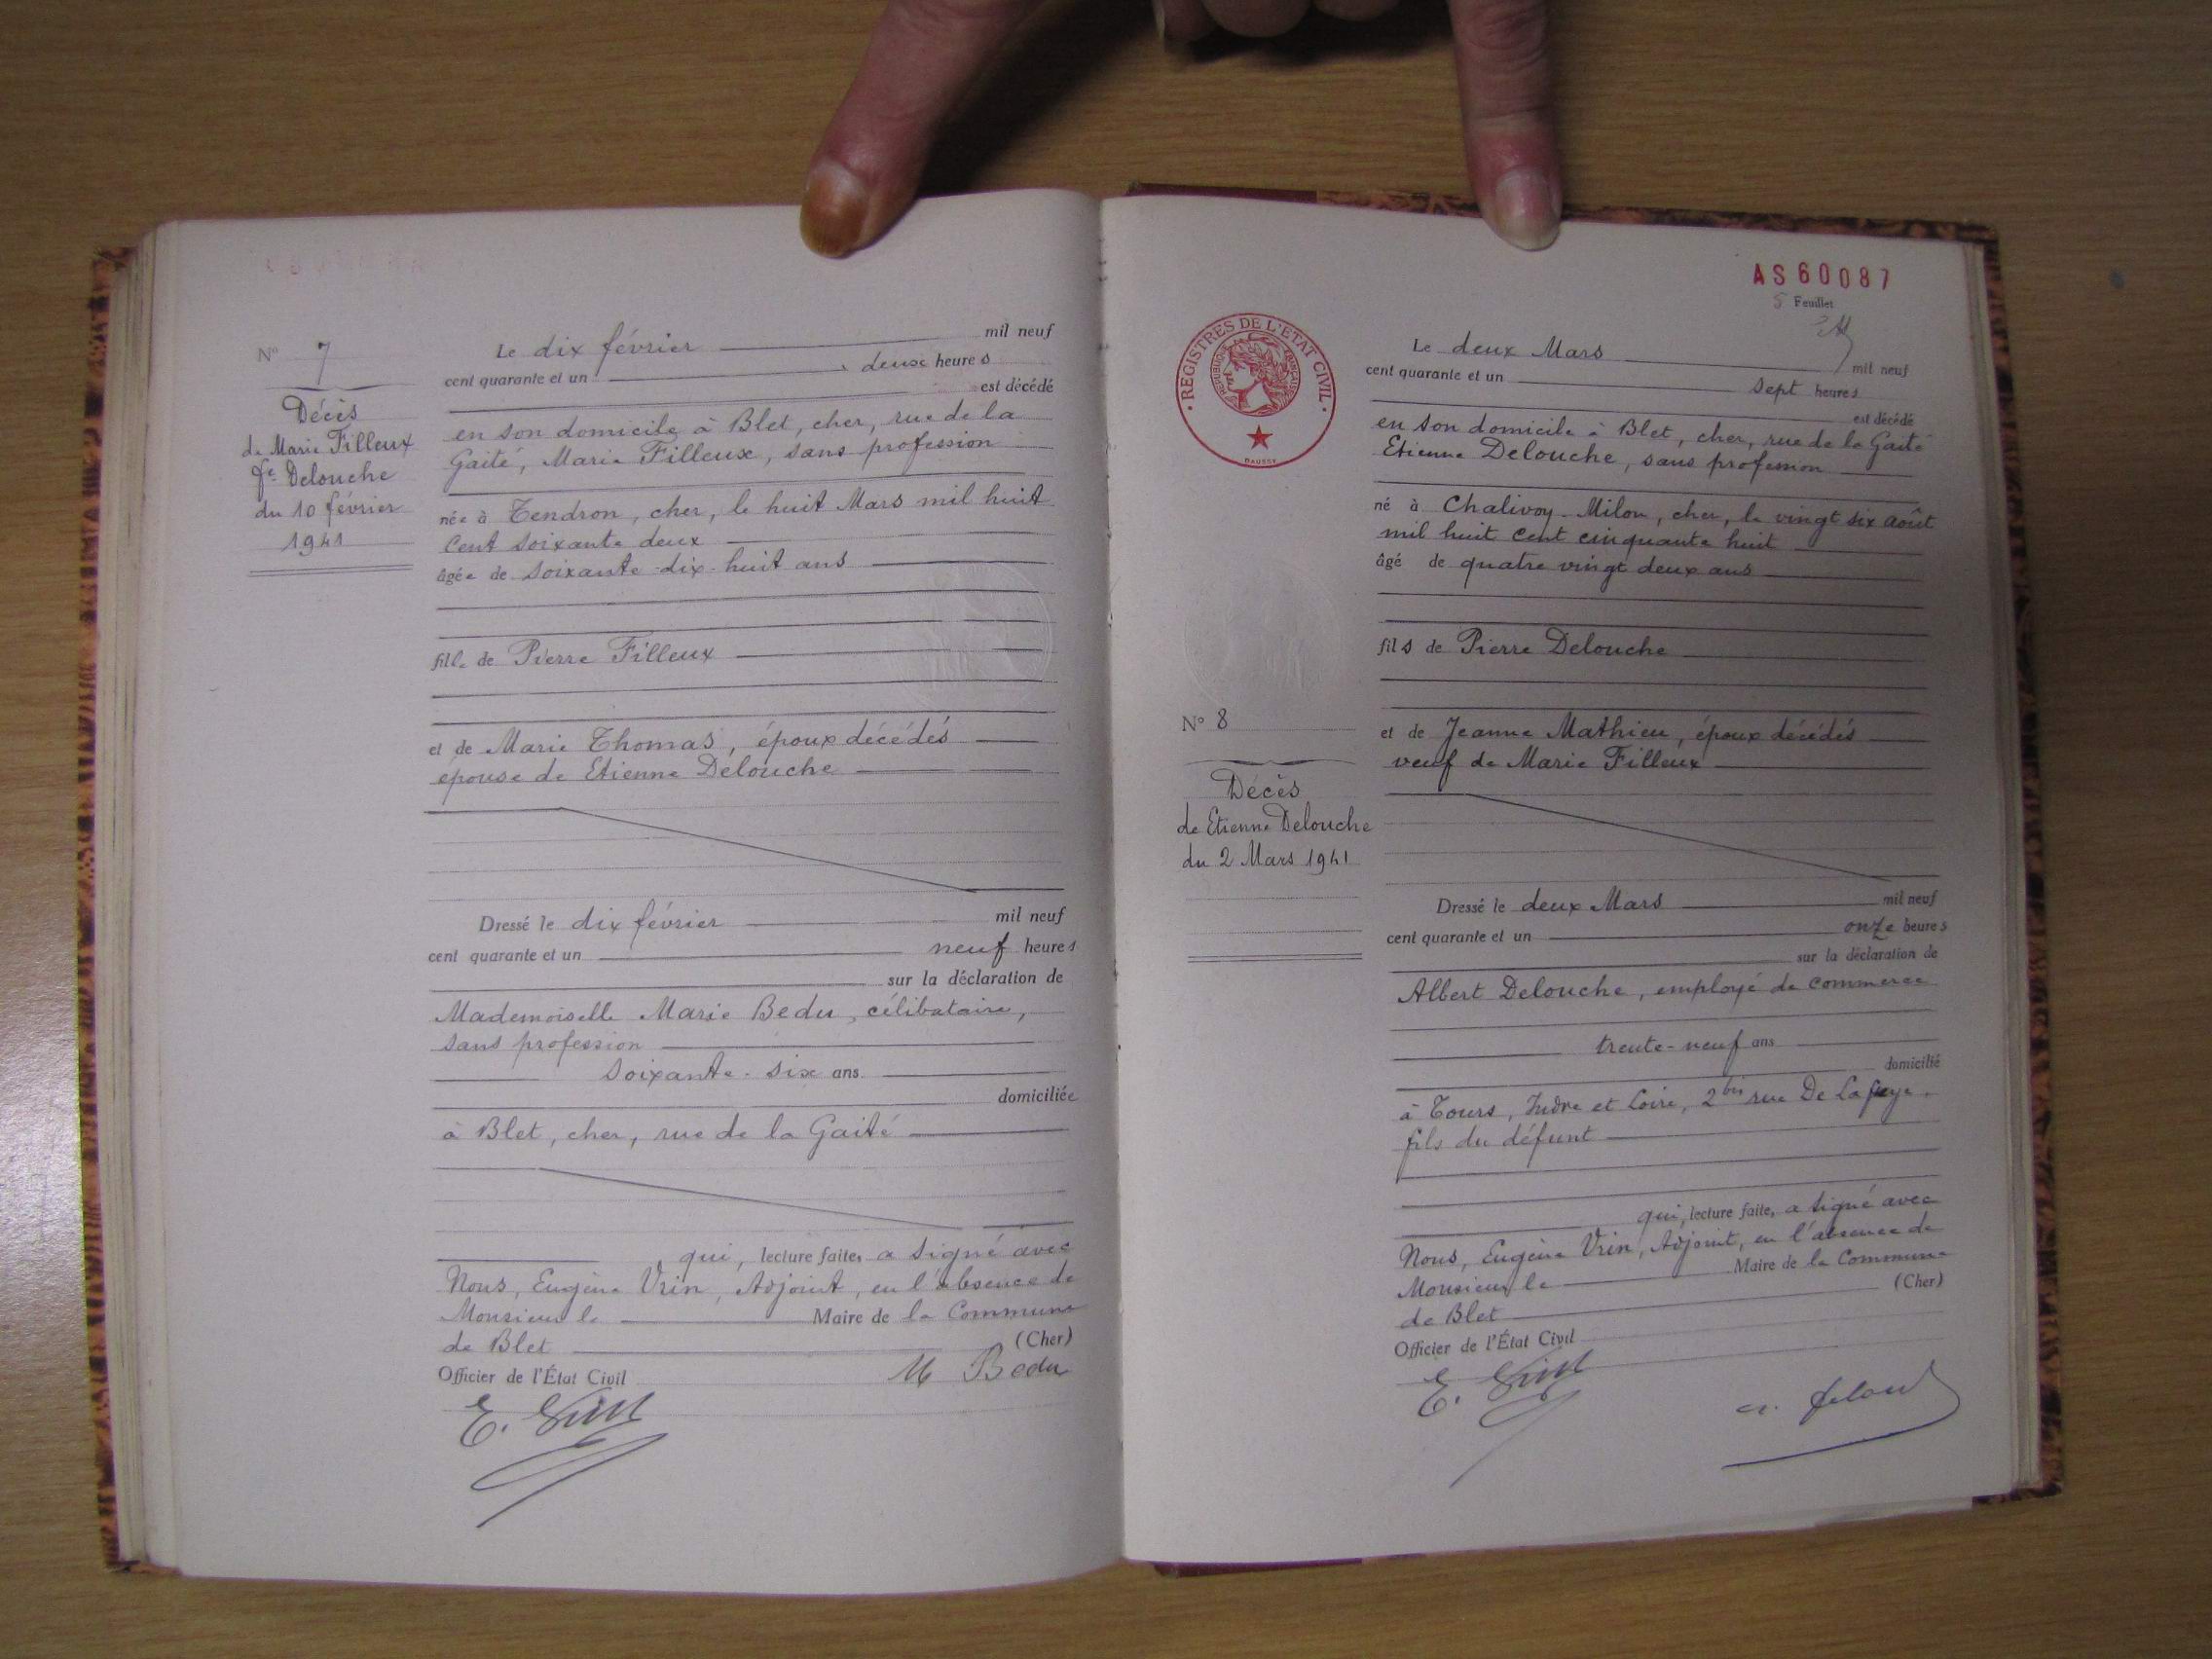 N° 7
Décès
de Marie Filleux
fe Delouche
du 10 février
1941
Le dix février mil neuf
cent quarante et un deux heures
est décédé
en son domicile à Blet, cher, rue de la
Gaité, Marie Filleux, sans profession
née à Tendron, cher, le huit Mars mil huit
Cent soixante deux
âgée de soixante-dix-huit ans
fille de Pierre Filleux
et de Marie Thomas, époux décédés
épouse de Etienne Delouche
Dressé le dix février mil neuf
cent quarante et un neuf heures
sur la déclaration de
Mademoiselle Marie Bedu, célibataire,
sans profession
soixante-six ans
domiciliée
à Blet, cher, rue de la Gaité
qui, lecture faite, a signé avec
Nous, Eugène Vrin, Adjoint, en l'absence de
Monsieur le Maire de la Commune
de Blet (Cher)
Officier de l'État Civil M Bedu
E. Vrin
AS60087
5 Feuillet
REGISTRES DE L'ETAT CIVIL
REPUBLIQUE FRANÇAISE
DAUSSY
N° 8
Décès
de Etienne Delouche
du 2 Mars 1941
Le deux Mars mil neuf
cent quarante et un sept heures
est décédé
en son domicile à Blet, cher, rue de la Gaité
Etienne Delouche, sans profession
né à Chalivoy-Milon, cher, le vingt six août
mil huit cent cinquante huit
âgé de quatre vingt deux ans
fils de Pierre Delouche
et de Jeanne Mathieu, époux décédés
veuf de Marie Filleux
Dressé le deux Mars mil neuf
cent quarante et un onze heures
sur la déclaration de
Albert Delouche, employé de commerce
trente-neuf ans
domicilié
à Tours, Indre et Loire, 2 bis rue De
fils du défunt
qui, lecture faite, a signé avec
Nous, Eugène Vrin, Adjoint, en l'absence de
Monsieur le Maire de la Commune
de Blet (Cher)
Officier de l'État Civil
E. Vrin